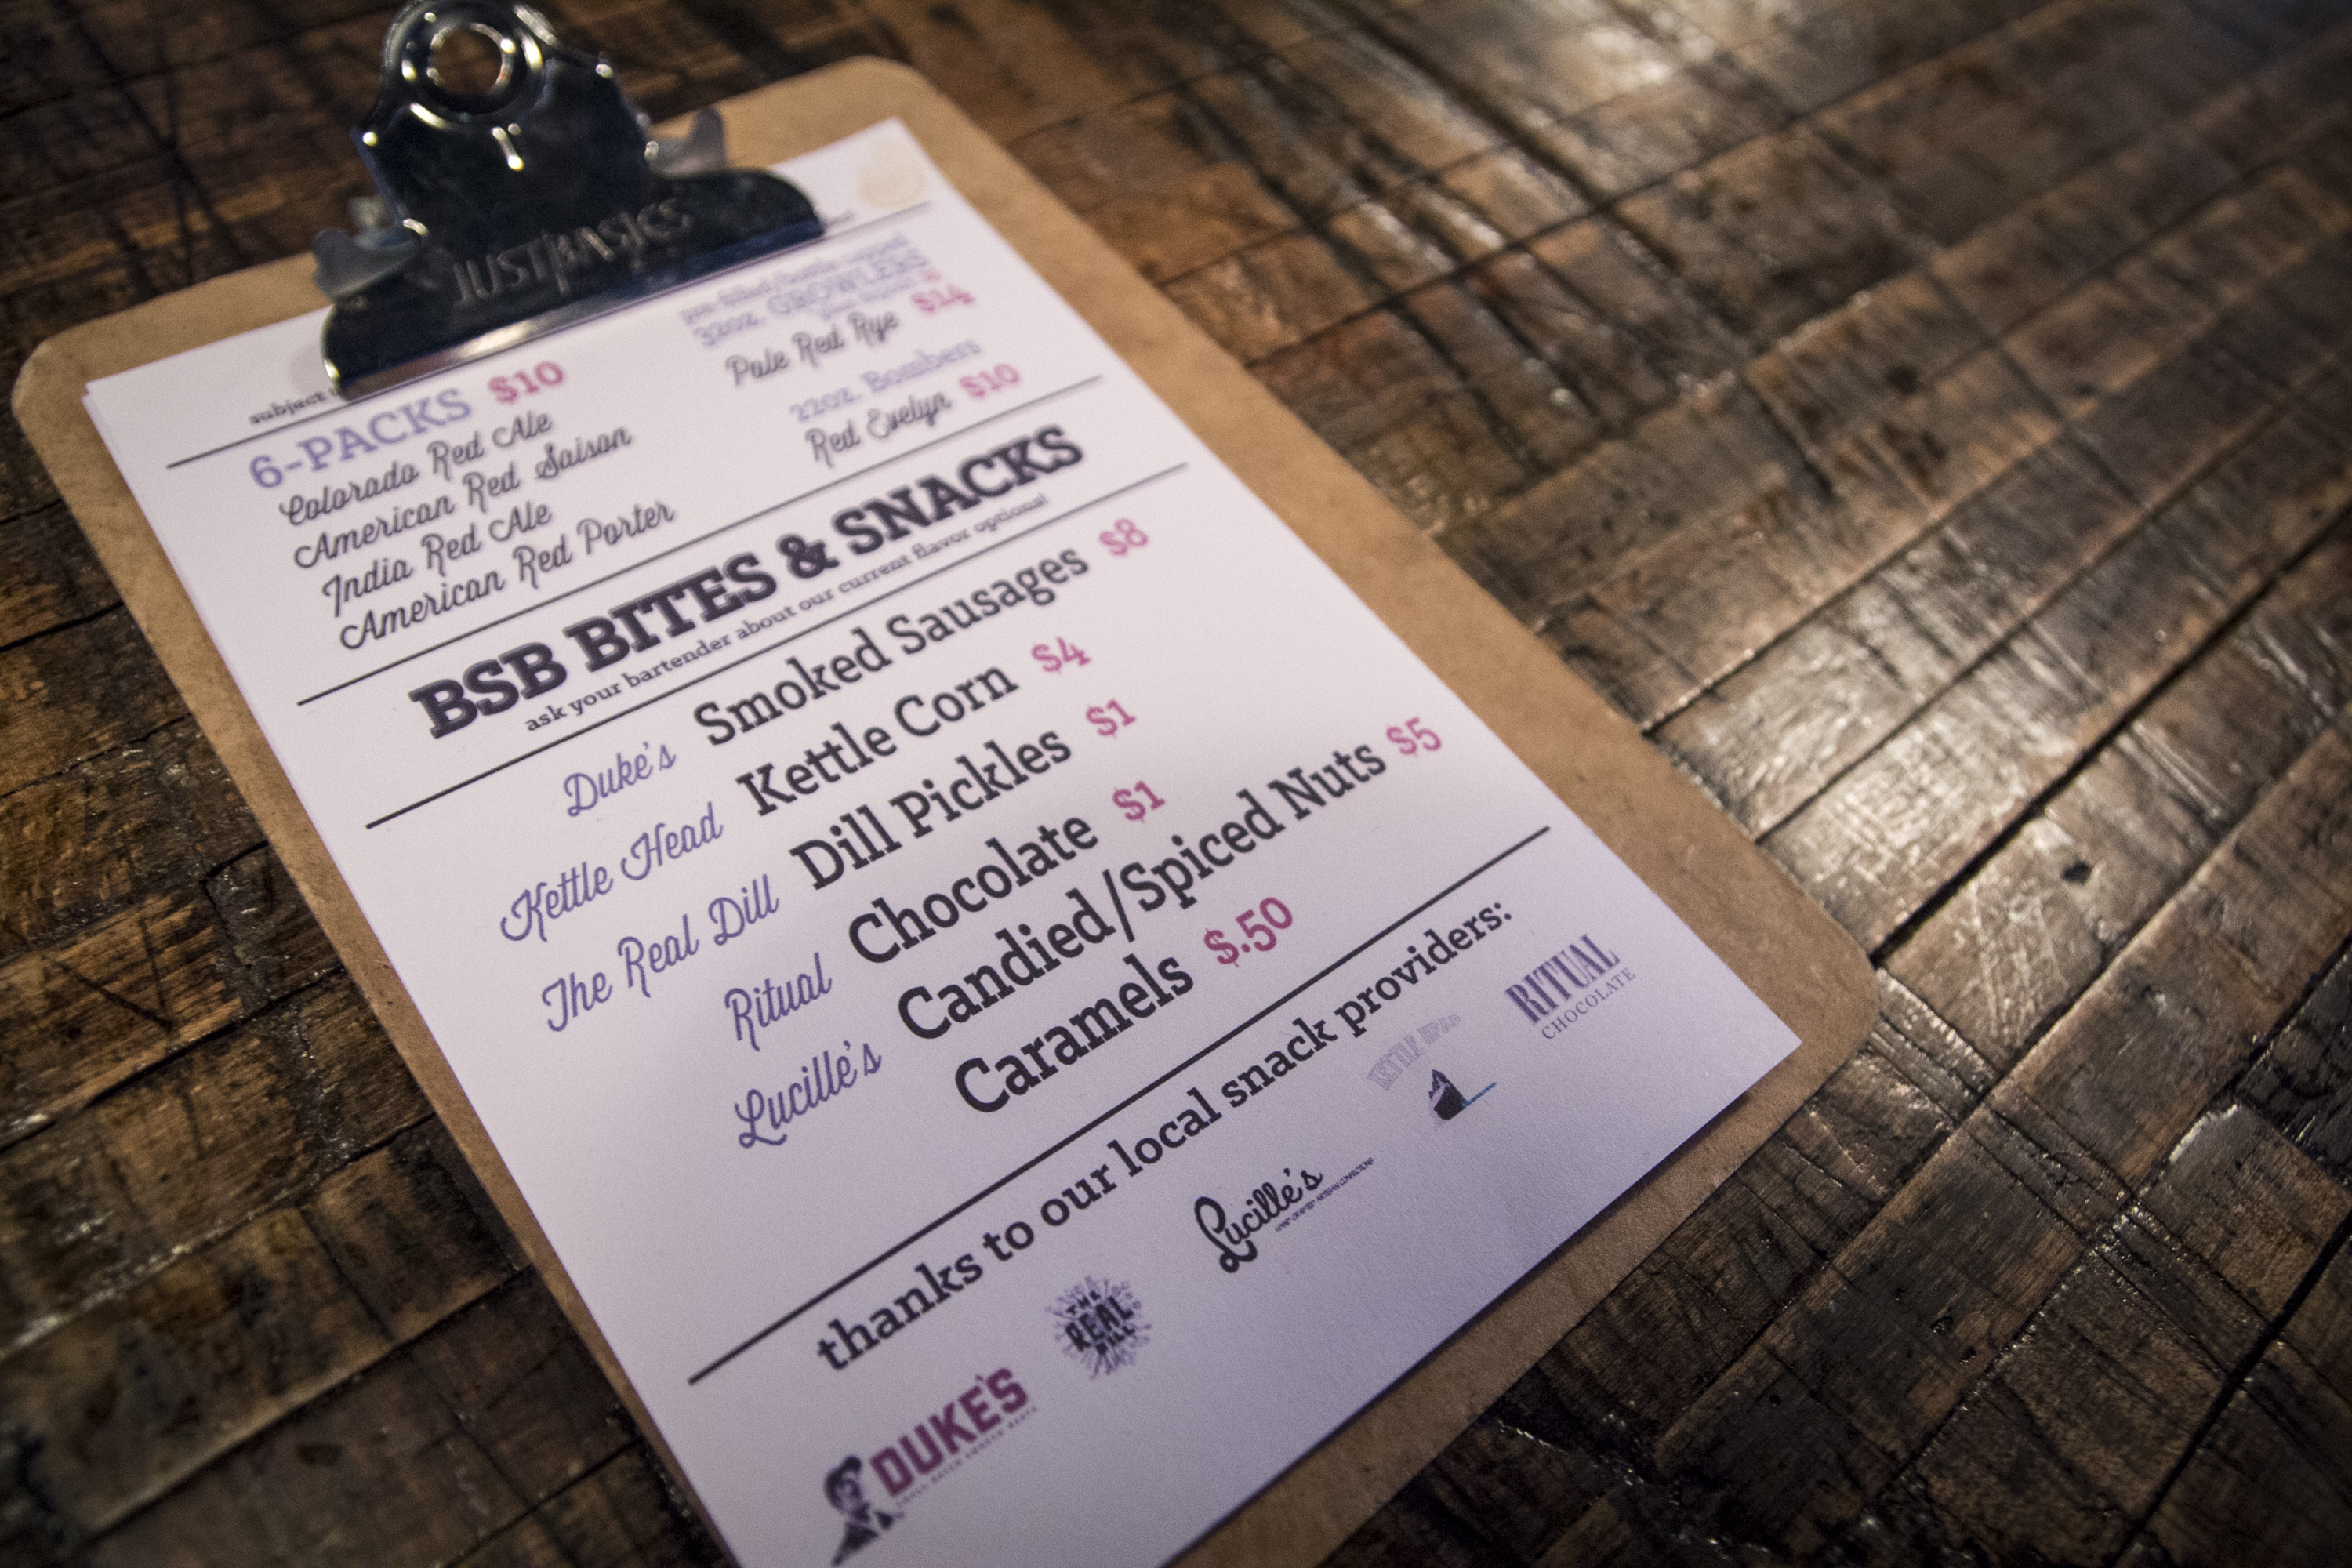 JUSTBASICS
subject
6-PACKS $10
Colorado Red Ale
American Red Saison
India Red Ale
American Red Porter
pre-filled/bottle-conditioned
32oz. GROWLERS
Pale Red Rye $14
22oz. Bombers
Red Evelyn $10
BSB BITES & SNACKS
ask your bartender about our current flavor options!
Duke's Smoked Sausages $8
Kettle Head Kettle Corn $4
The Real Dill Dill Pickles $1
Ritual Chocolate $1
Lucille's Candied/Spiced Nuts $5
Caramels $.50
thanks to our local snack providers:
DUKE'S
THE
REAL
DILL
Lucille's
KETTLE HEAD
RITUAL
CHOCOLATE